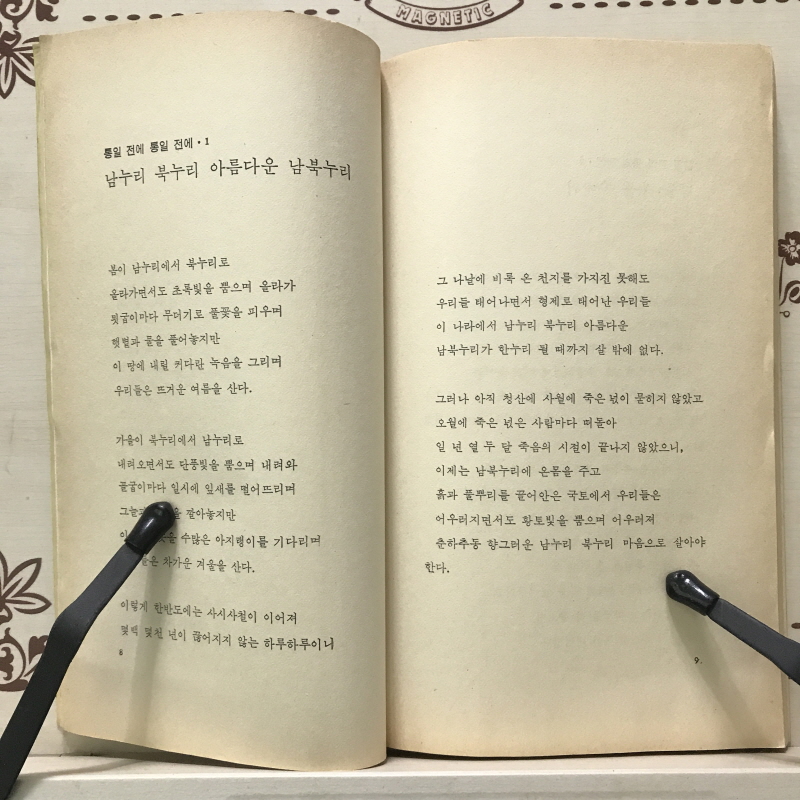 MAGNETIC
통일 전에 통일 전에 • 1
남누리 북누리 아름다운 남북누리
봄이 남누리에서 북누리로
올라가면서도 초록빛을 뿜으며 올라가
묏굽이마다 무더기로 풀꽃을 피우며
햇볕과 물을 풀어놓지만
이 땅에 내릴 커다란 녹음을 그리며
우리들은 뜨거운 여름을 산다.
가을이 북누리에서 남누리로
내려오면서도 단풍빛을 뿜으며 내려와
물굽이마다 일시에 잎새를 떨어뜨리며
깔아놓지만
수많은 아지랭이를 기다리며
차가운 겨울을 산다.
이렇게 한반도에는 사시사철이 이어져
몇백 몇천 년이 끊어지지 않는 하루하루이니
8
그 나날에 비록 온 천지를 가지진 못해도
우리들 태어나면서 형제로 태어난 우리들
이 나라에서 남누리 북누리 아름다운
남북누리가 한누리 될 때까지 살 밖에 없다.
그러나 아직 청산에 사월에 죽은 넋이 묻히지 않았고
오월에 죽은 넋은 사람마다 떠돌아
일 년 열 두 달 죽음의 시절이 끝나지 않았으니,
이제는 남북누리에 온몸을 주고
흙과 풀뿌리를 끌어안은 국토에서 우리들은
어우러지면서도 황토빛을 뿜으며 어우러져
춘하추동 향그러운 남누리 북누리 마음으로 살아야
한다.
9